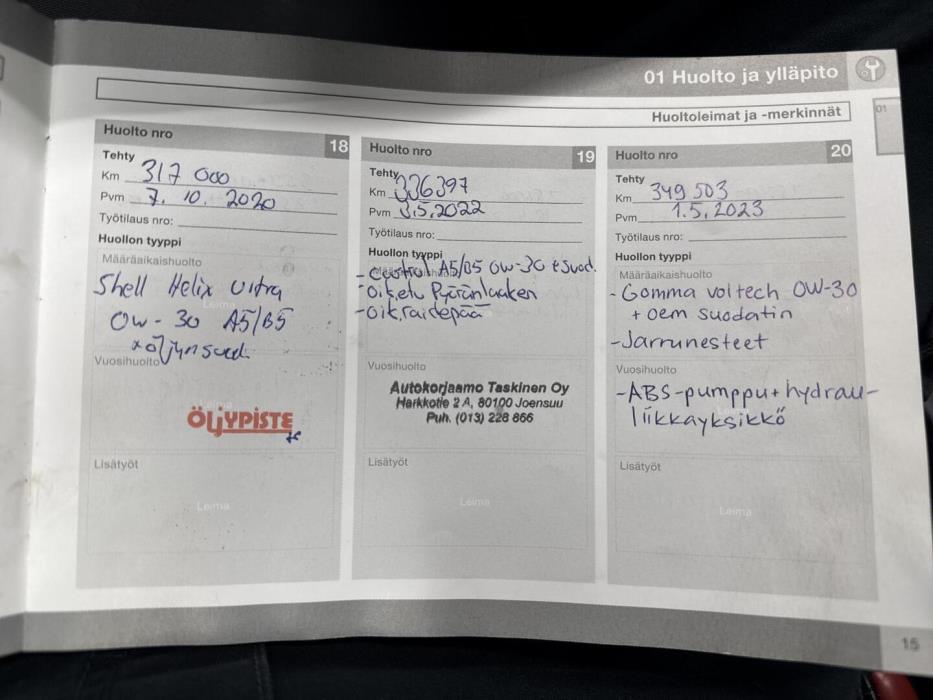 01 Huolto ja ylläpito
01
Huoltoleimat ja -merkinnät
Huolto nro 18
Tehty
Km 317 000
Pvm 7. 10. 2020
Työtilaus nro:
Huollon tyyppi
Määräaikaishuolto
Shell Helix Ultra
0w-30 A5/B5
+ öljynsuod.
Vuosihuolto
ÖLJYPISTE
Lisätyöt
Leima
Huolto nro 19
Tehty
Km 336397
Pvm 3.5.2022
Työtilaus nro:
Huollon tyyppi
- A5/B5 0w-30 + suod.
- oik.etu Pyöränlaaken
- oik.raidepää
Vuosihuolto
Autokorjaamo Taskinen Oy
Harkkotie 2 A, 80100 Joensuu
Puh. (013) 228 866
Lisätyöt
Leima
Huolto nro 20
Tehty
Km 349 503
Pvm 1.5.2023
Työtilaus nro:
Huollon tyyppi
Määräaikaishuolto
- Gomma voltech 0W-30
+ oem suodatin
- Jarrunesteet
Vuosihuolto
- ABS-pumppu + hydrau-
liikkayksikkö
Lisätyöt
Leima
15